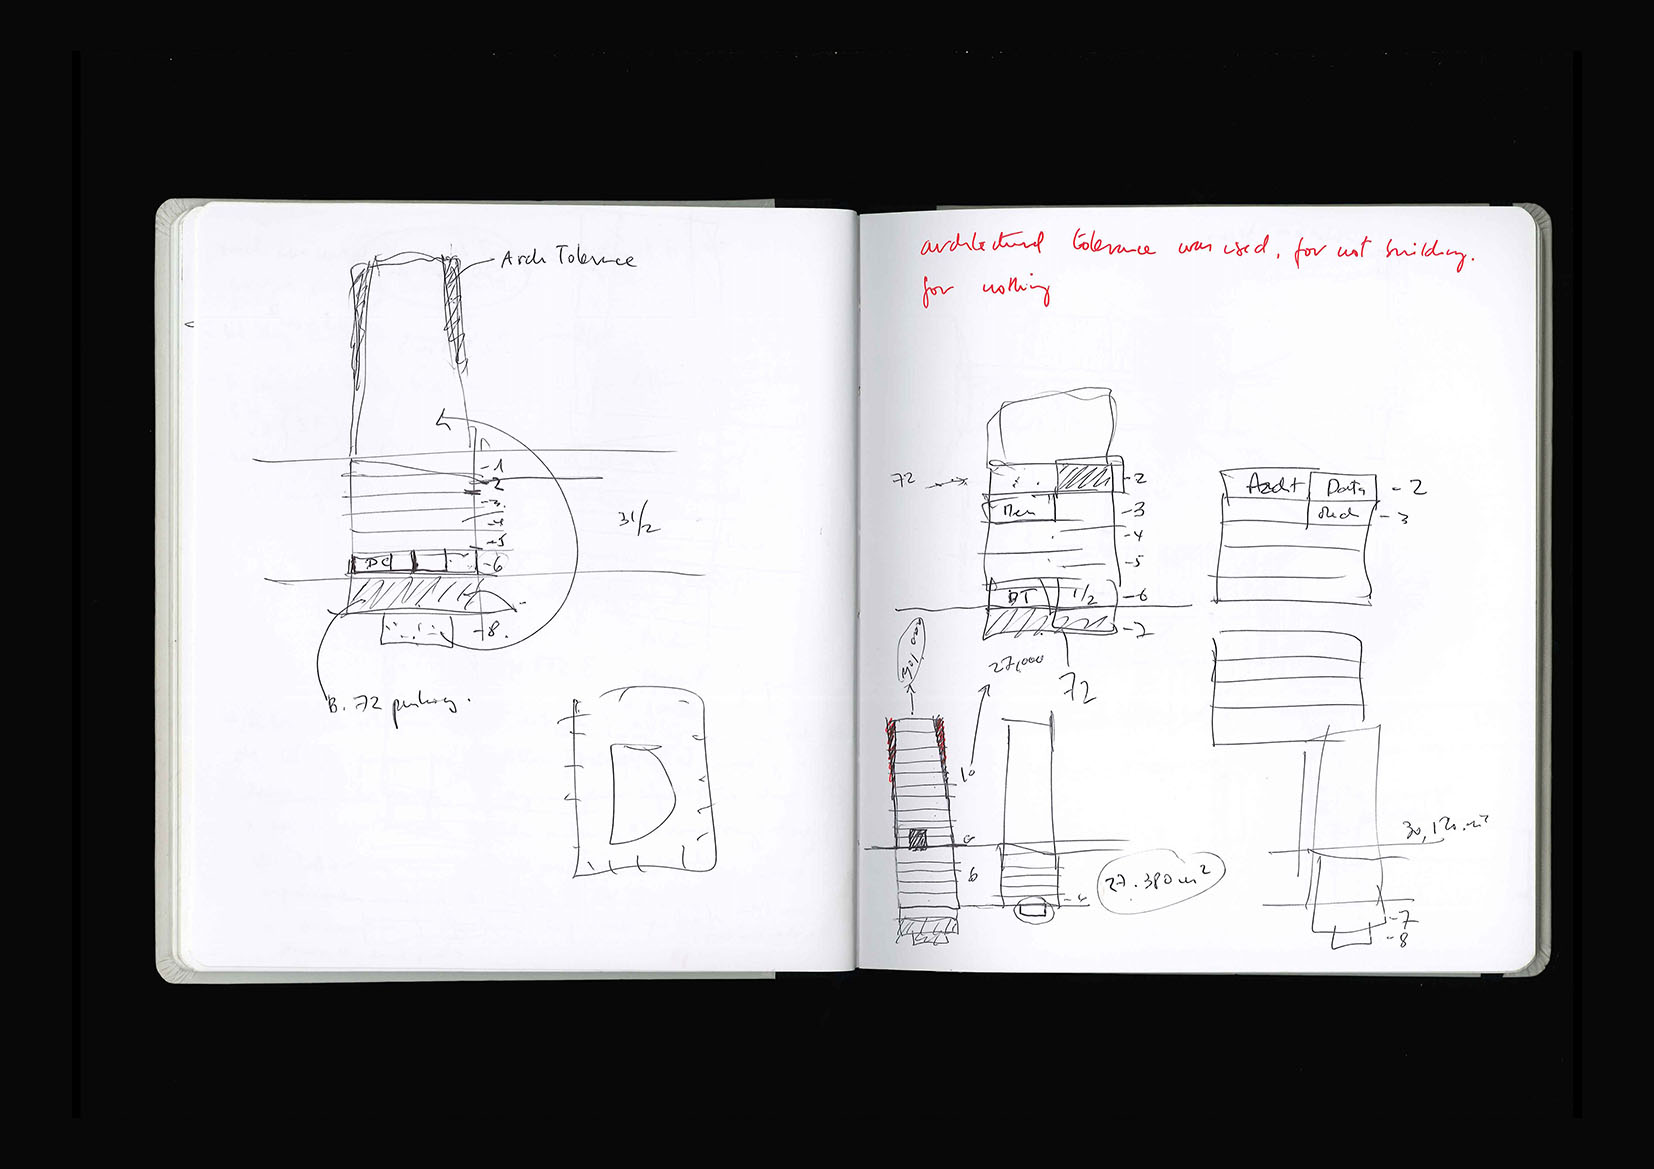 Arch Tolerance
-1
-2
-3
-4
-5
DC
-6
-8.
3 1/2
B. 72 parking.
architectural tolerance was used, for not building.
for nothing
72
-2
-3
-4
-5
1/2
-6
-7
27,000
72
Data
-2
-3
10
6
27.380 m²
30,120 m²
-7
-8